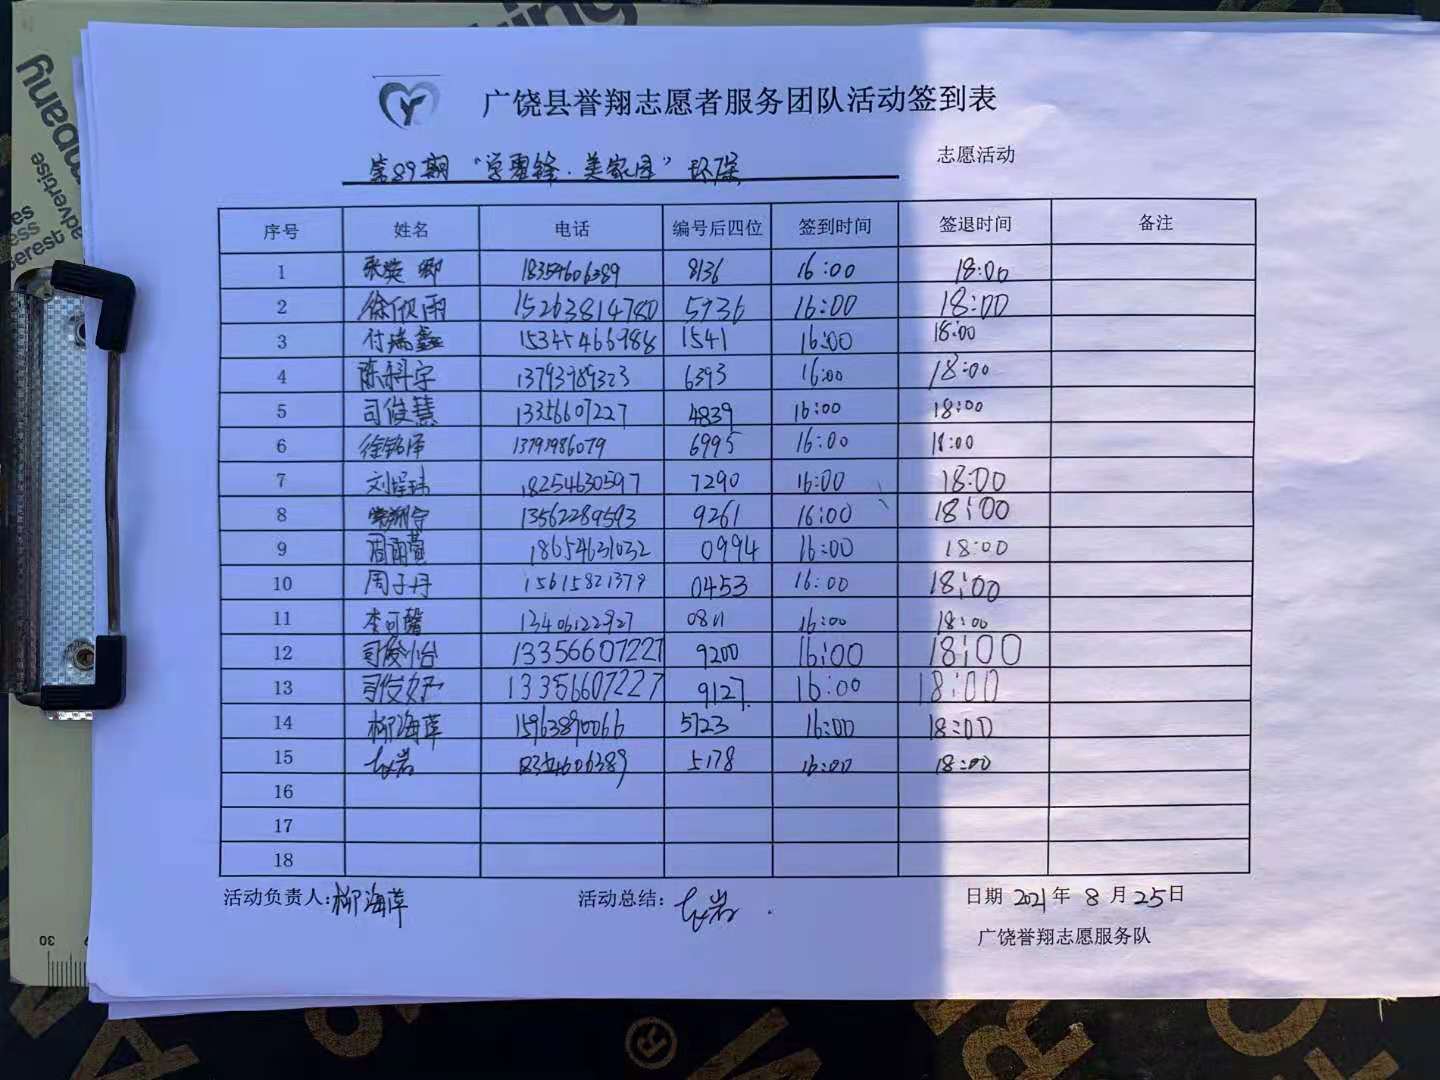 Y
广饶县誉翔志愿者服务团队活动签到表
第89期 "学雷锋·美家园" 环保 志愿活动
序号 姓名 电话 编号后四位 签到时间 签退时间 备注
1 18354606389 8136 16:00 18:00
2 徐欣雨 15263814780 5936 16:00 18:00
3 付瑞鑫 1541 16:00 18:00
4 陈科宇 13793989323 6393 16:00 18:00
5 司俊慧 13356607227 4839 16:00 18:00
6 徐铭泽 13793986079 6995 16:00 18:00
7 18254630597 7290 16:00 18:00
8 13562289593 9261 16:00 18:00
9 周雨萱 18654631032 0994 16:00 18:00
10 周子丹 15615821379 0453 16:00 18:00
11 李可馨 13406122927 0811 16:00 18:00
12 司俊怡 13356607227 9200 16:00 18:00
13 司俊好 13356607227 9127 16:00 18:00
14 柳海萍 15963890066 5723 16:00 18:00
15 18354606389 5178 16:00 18:00
16
17
18
活动负责人:柳海萍 活动总结: 日期 2021年 8月25日
广饶誉翔志愿服务队
30
®